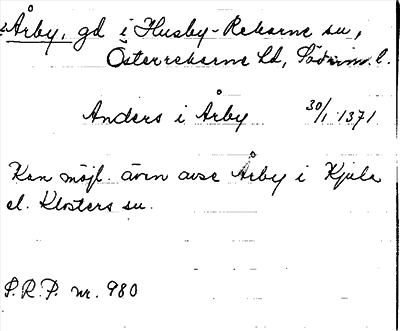 Årby, gd i Husby-Rekarne sn,
Österrekarne hd, Södermanl. l.
Anders i Årby 30/1 1371
Kan möjl. även avse Årby i Kjula
el. Klosters sn.
S.R.P. nr. 980